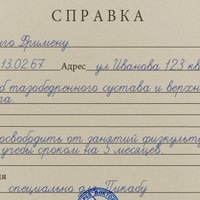 СПРАВКА
го Фримену
13.02.67 Адрес ул Иванова 123 кв
б тазобедренного сустава и верхн
ра.
освободить от занятий физкульт
учебы сроком на 5 месяцев.
ия
специально для Пикабу